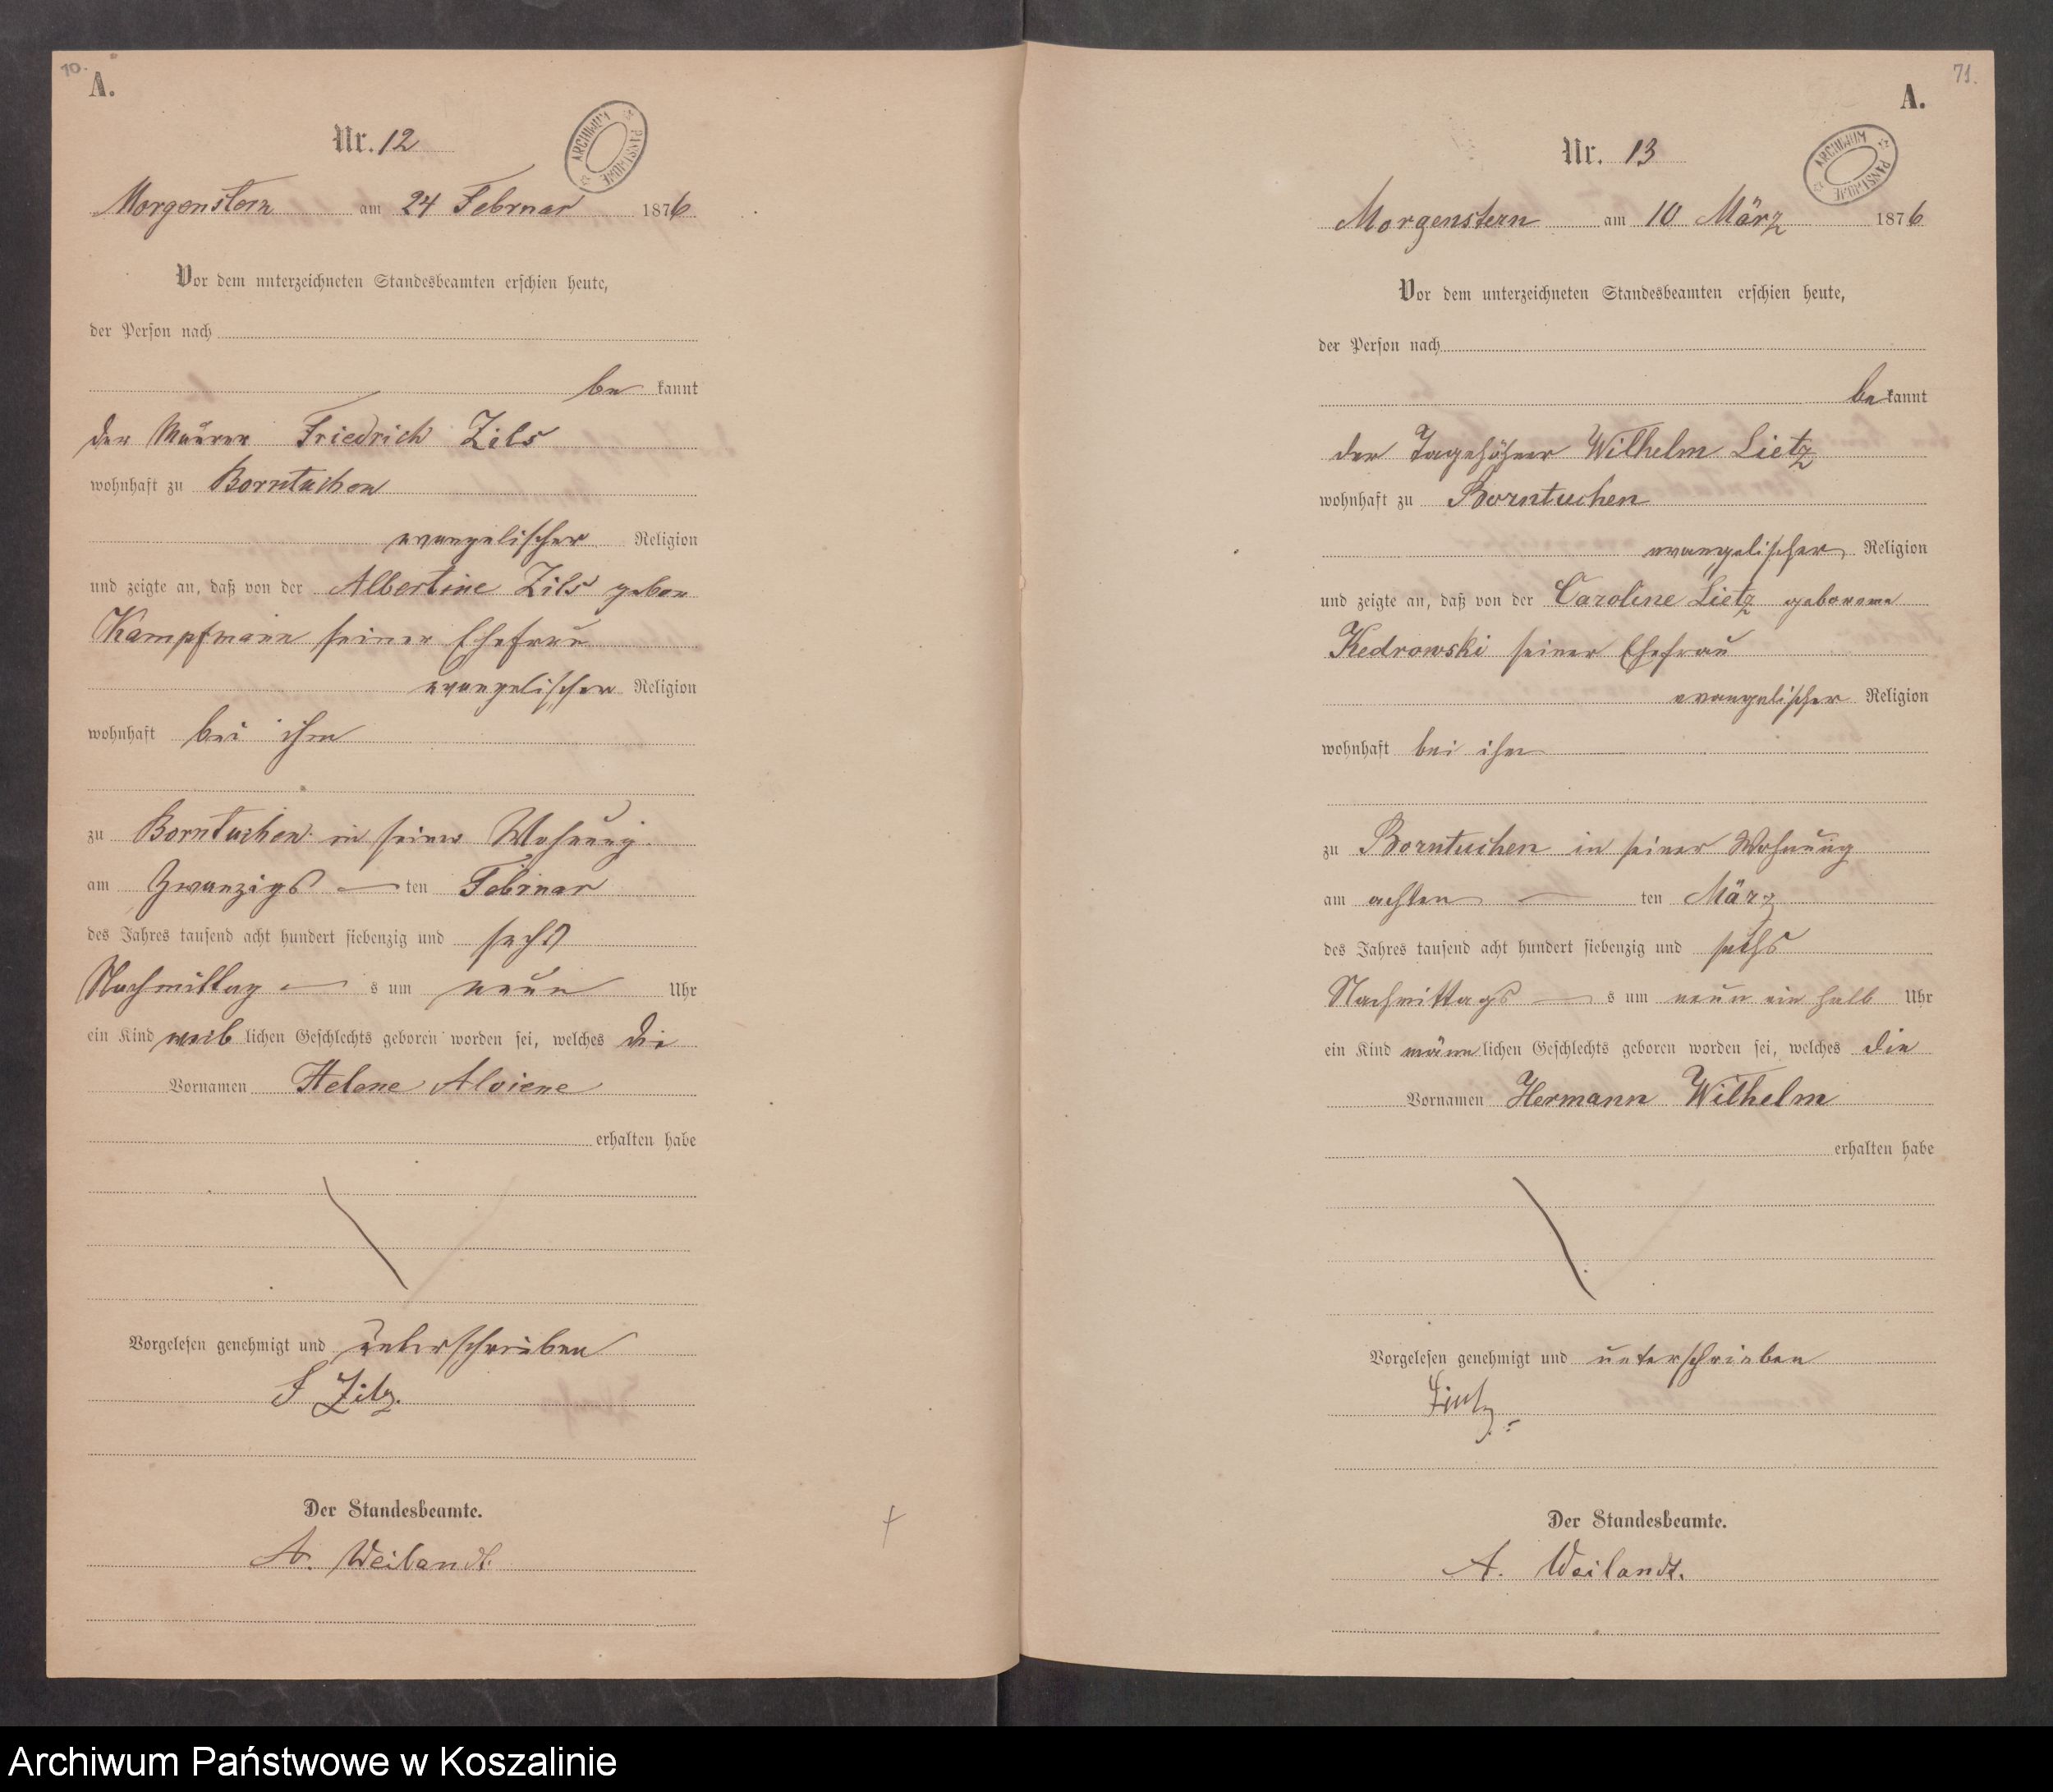 10.
A.
ARCHIWUM PAŃSTWOWE
Nr. 12
Morgenstern am 24 Februar 1876
Vor dem unterzeichneten Standesbeamten erschien heute,
der Person nach
be kannt
der Maurer Friedrich Zils
wohnhaft zu Borntuchen
evangelischer Religion
und zeigte an, daß von der Albertine Zils gebor
Kampfmann seiner Ehefrau
evangelischer Religion
wohnhaft bei ihm
zu Borntuchen in seiner Wohnung
am Zwanzigs ten Februar
des Jahres tausend acht hundert siebenzig und sechs
Nachmittag s um neun Uhr
ein Kind weib lichen Geschlechts geboren worden sei, welches die
Vornamen Helene Alviene
erhalten habe
Vorgelesen genehmigt und unterschrieben
F Zilz.
Der Standesbeamte.
A. Weilandt.
71.
A.
ARCHIWUM PAŃSTWOWE
Nr. 13
Morgenstern am 10 März 1876
Vor dem unterzeichneten Standesbeamten erschien heute,
der Person nach
be kannt
der Tagelöhner Wilhelm Lietz
wohnhaft zu Borntuchen
evangelischer Religion
und zeigte an, daß von der Caroline Lietz geborene
Kedrowski seiner Ehefrau
evangelischer Religion
wohnhaft bei ihm
zu Borntuchen in seiner Wohnung
am achten ten März
des Jahres tausend acht hundert siebenzig und sechs
Nachmittags s um neun ein halb Uhr
ein Kind männ lichen Geschlechts geboren worden sei, welches die
Vornamen Hermann Wilhelm
erhalten habe
Vorgelesen genehmigt und unterschrieben
Lietz
Der Standesbeamte.
A. Weilandt.
Archiwum Państwowe w Koszalinie